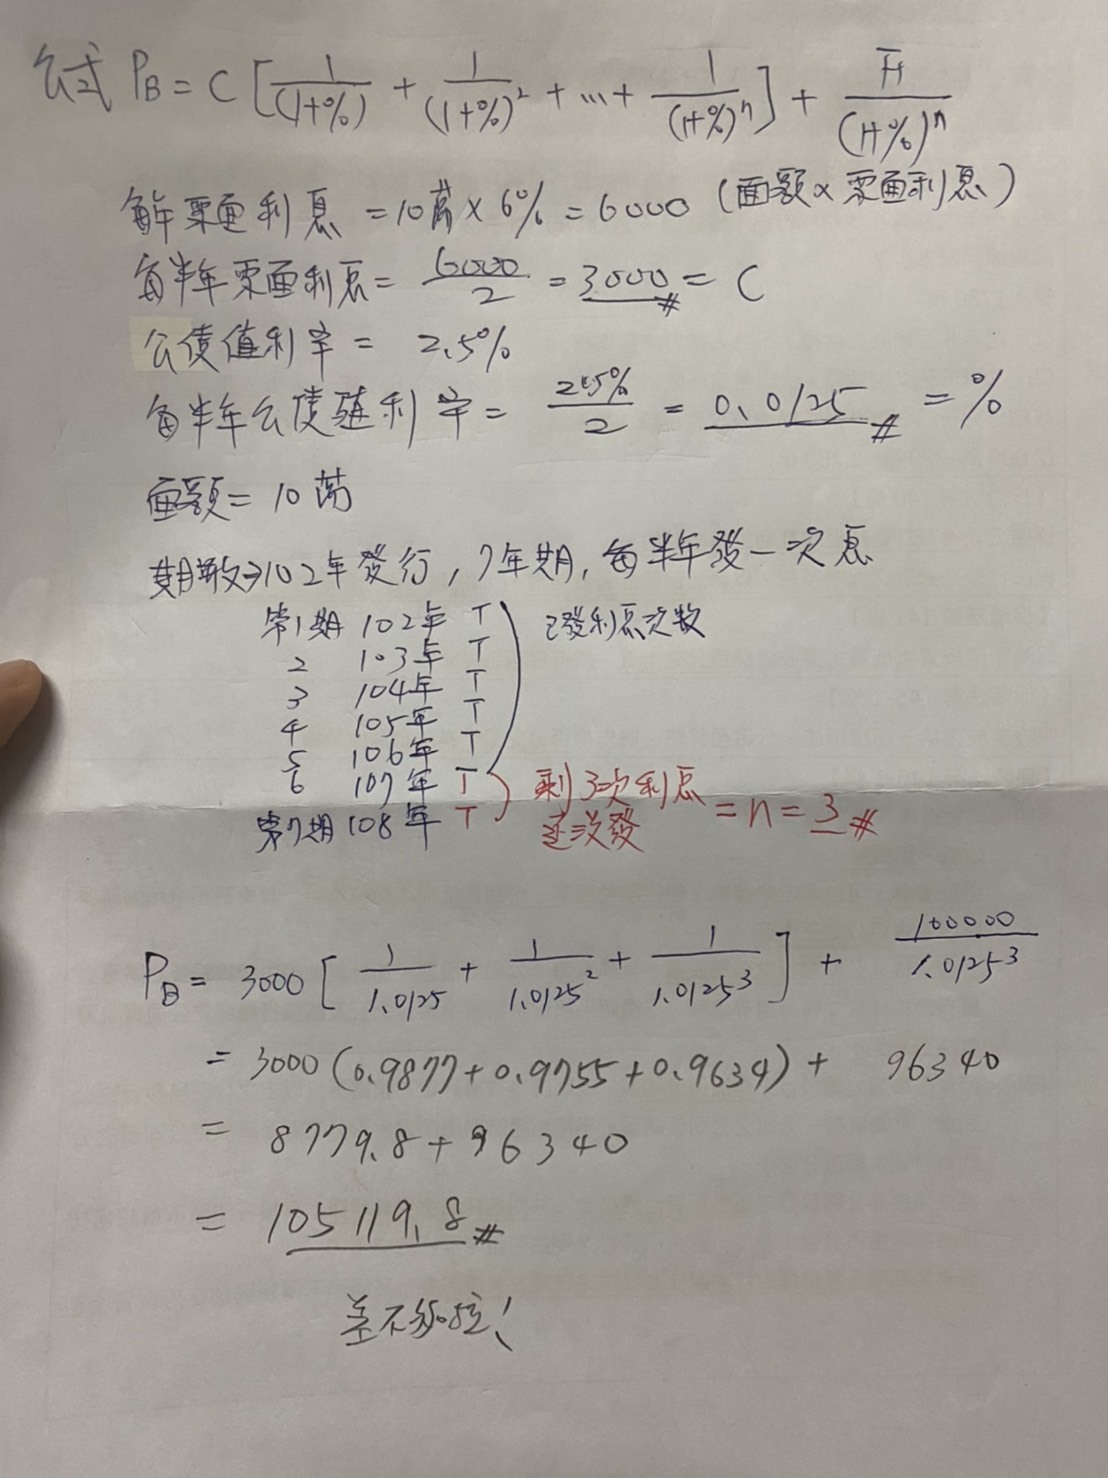 公式 P_B = C [ 1/(1+%) + 1/(1+%)² + ... + 1/(1+%)ⁿ ] + F/(1+%)ⁿ
每年票面利息 = 10萬 × 6% = 6000 (面額 × 票面利息)
每半年票面利息 = 6000/2 = 3000# = C
公債值利率 = 2.5%
每半年公債殖利率 = 2.5%/2 = 0.0125# = %
面額 = 10萬
期數→102年發行, 7年期, 每半年發一次息
第1期 102年 T 已發利息次數
2 103年 T
3 104年 T
4 105年 T
5 106年 T
6 107年 T 剩3次利息
第7期 108年 T 還沒發 = n = 3#
P_B = 3000 [ 1/1.0125 + 1/1.0125² + 1/1.0125³ ] + 100000/1.0125³
= 3000 (0.9877 + 0.9755 + 0.9634) + 96340
= 8779.8 + 96340
= 105119.8#
差不多啦!